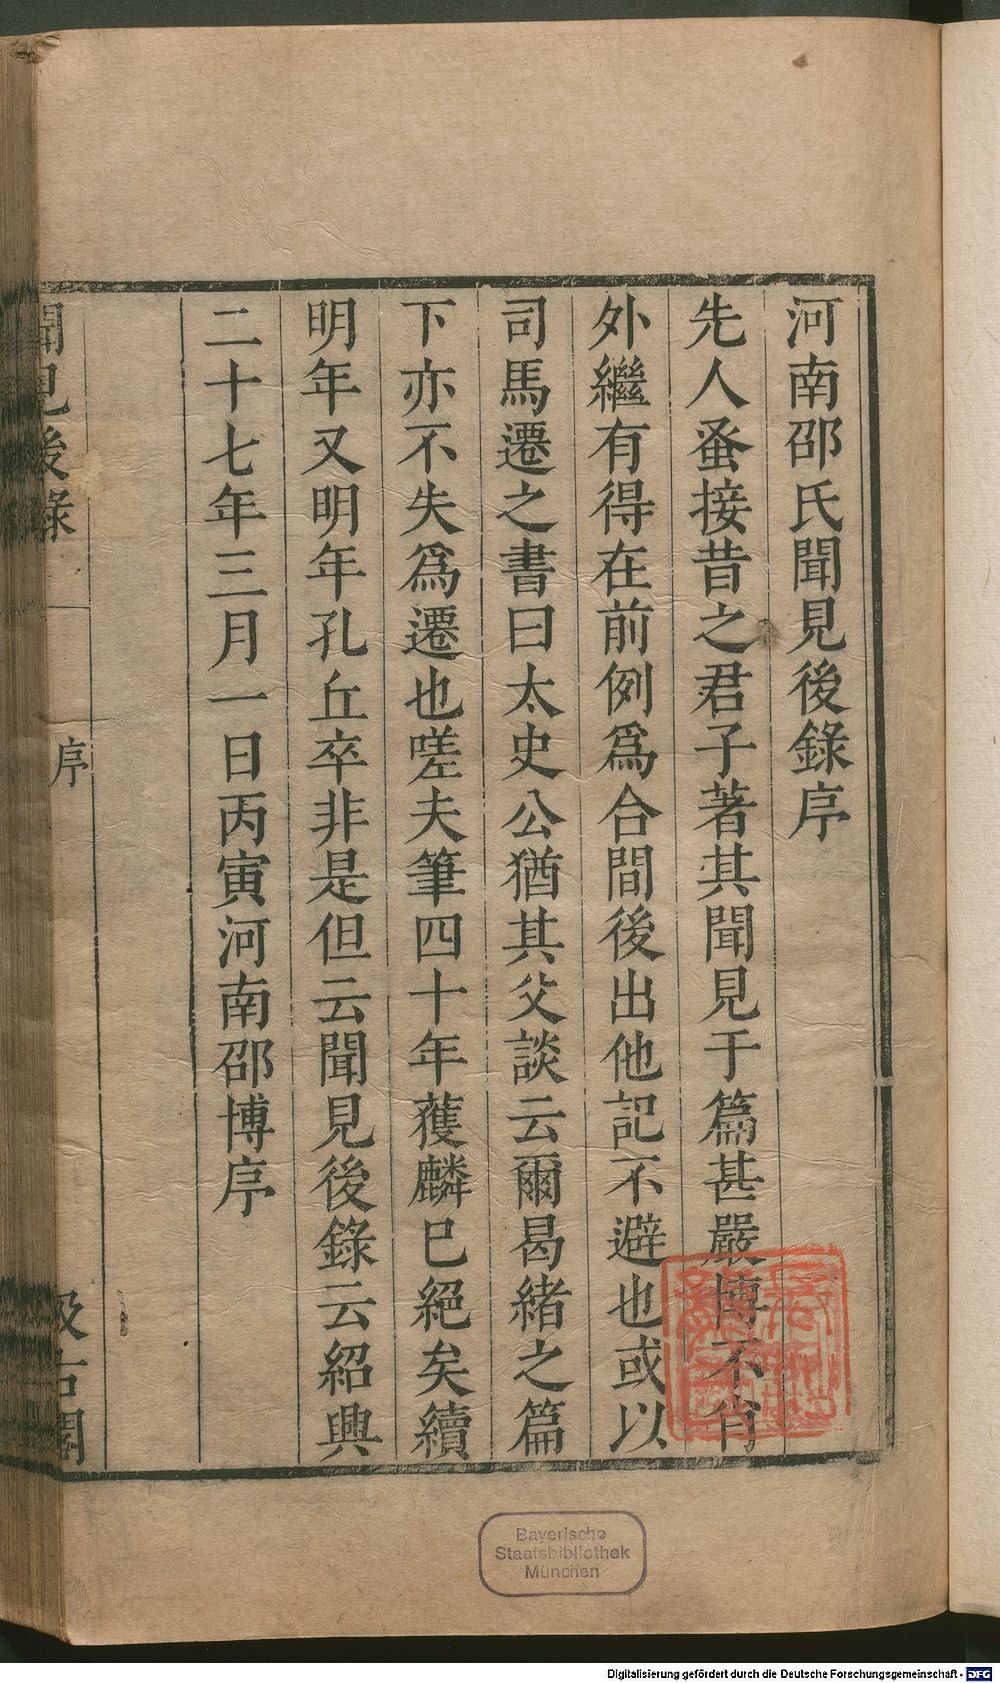 河南邵氏聞見後錄序
先人蚤接昔之君子著其聞見于篇甚嚴博不肖
外繼有得在前例爲合間後出他記不避也或以
司馬遷之書曰太史公猶其父談云爾曷緒之篇
下亦不失爲遷也嗟夫筆四十年蒦麟巳絕矣續
明年又明年孔丘卒非是但云聞見後錄云紹興
二十七年三月一日丙寅河南邵博序
聞見後錄
序
汲古閣
Bayerische
Staatsbibliothek
München
Digitalisierung gefördert durch die Deutsche Forschungsgemeinschaft - DFG